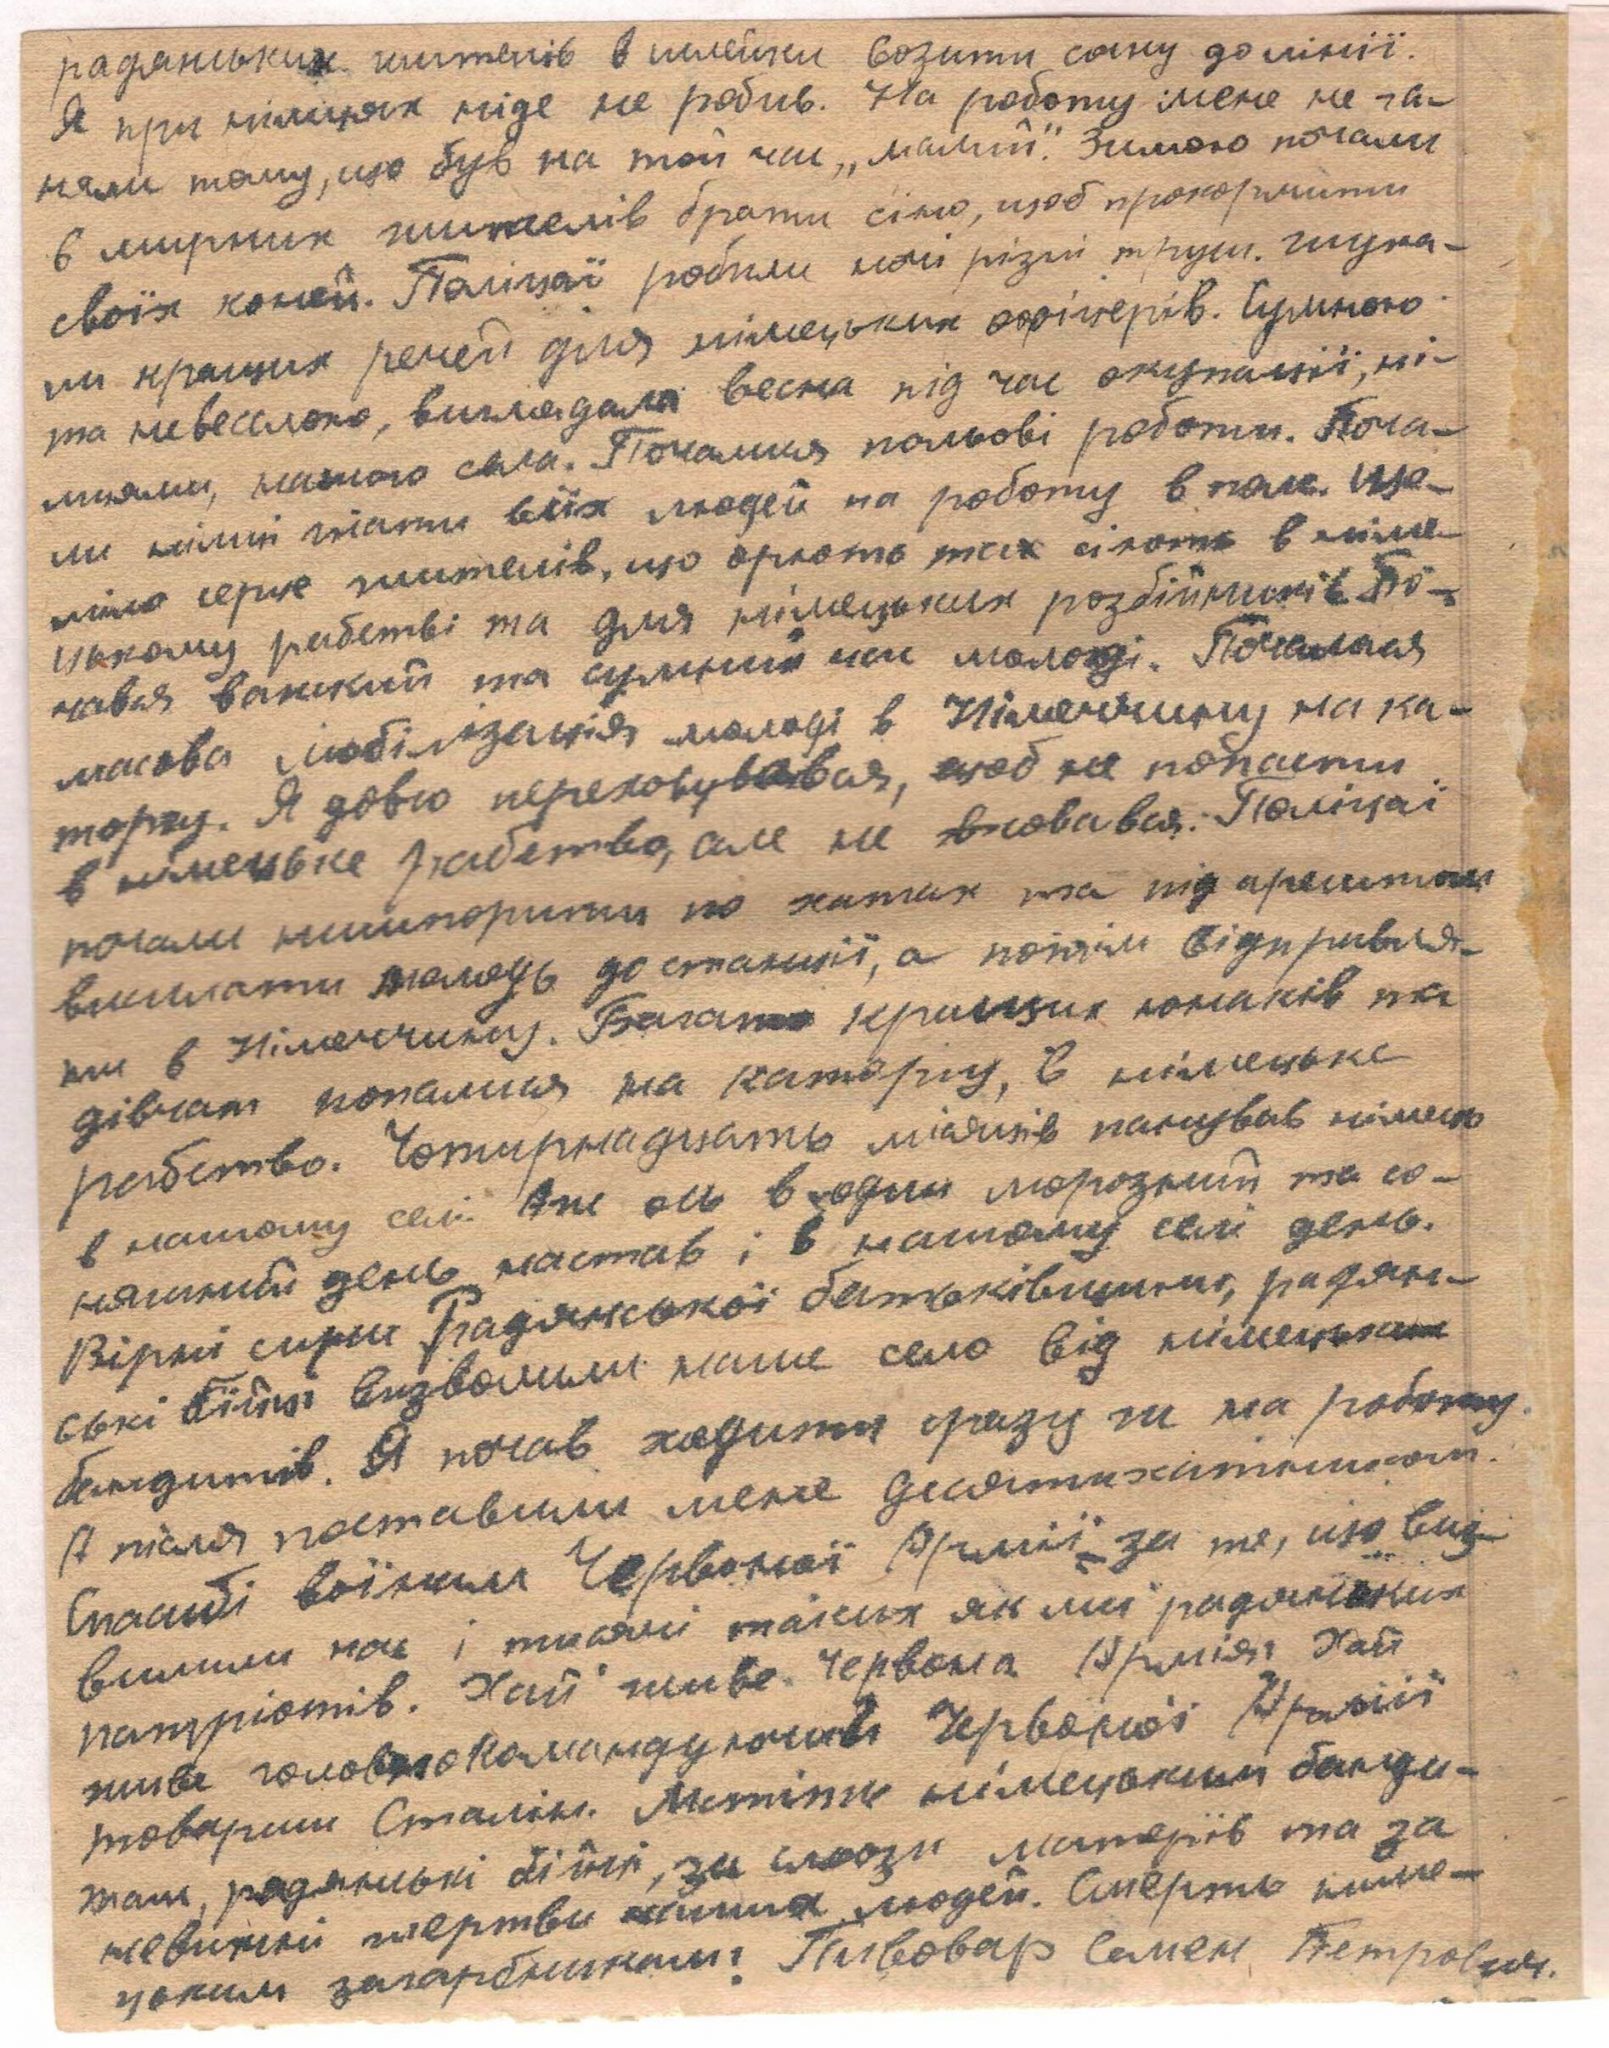 радянських жителів в шлейки возити сани до лінії.
Я при німцях ніде не робив. На роботу мене не га-
няли тому, що був на той час „малий". Зимою почали
в мирних жителів брати сіно, щоб прокормити
своїх коней. Поліцаї робили ночі різні труси. шука-
ли кращих речей для німецьких офіцерів. Сумною
та невеселою, виглядала весна під час окупації, ні-
мцями, нашого села. Почалися польові роботи. Поча-
ли німці гнати всіх людей на роботу в поле. Ще-
міло серце жителів, що орють та сіють в німе-
цькому рабстві та для німецьких розбійників. По-
чався важкий та сумний час молоді. Почалася
масова мобілізація молоді в Німеччину на ка-
торгу. Я довго переховувався, щоб не попасти
в німецьке рабство, але не вховався. Поліцаї
почали нишпорити по хатах та під арештом
висилати молодь до станції, а потім відправля-
ти в Німеччину. Багато кращих юнаків та
дівчат попалися на каторгу, в німецьке
рабство. Чотирнадцять місяців панував німець
в нашому селі. Аж ось в один морозний та со-
няшний день настав і в нашому селі день.
Вірні сини Радянської батьківщини, радян-
ські бійці визволили наше село від німецьких
бандитів. Я почав ходити сразу ж на роботу.
А після поставили мене десятихатником.
Спасибі воїнам Червоної Армії за те, що виз-
волили нас і тисячі таких як ми радянських
патріотів. Хай живе Червона Армія! Хай
живе головнокомандуючий Червоної Армії
товариш Сталін. Мстіть німецьким банди-
там, радянські бійці, за сльози матерів та за
невинні жертви наших людей. Смерть німе-
цьким загарбникам! Пивовар Семен Петрович.